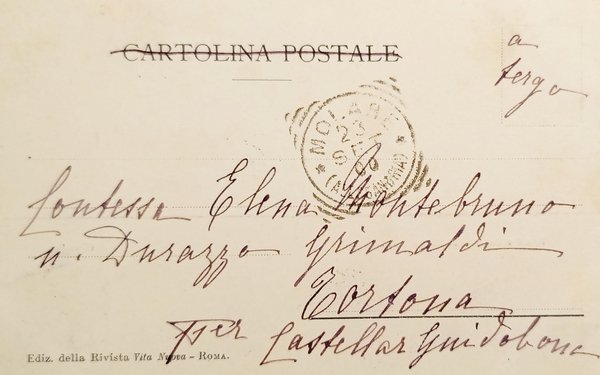 CARTOLINA POSTALE
a
tergo
MOLARE
23
SET
00
(ALESSANDRIA)
Contessa Elena Montebruno
n. Durazzo Grimaldi
Tortona
per Castellar Guidobono
Ediz. della Rivista Vita Nuova - ROMA.